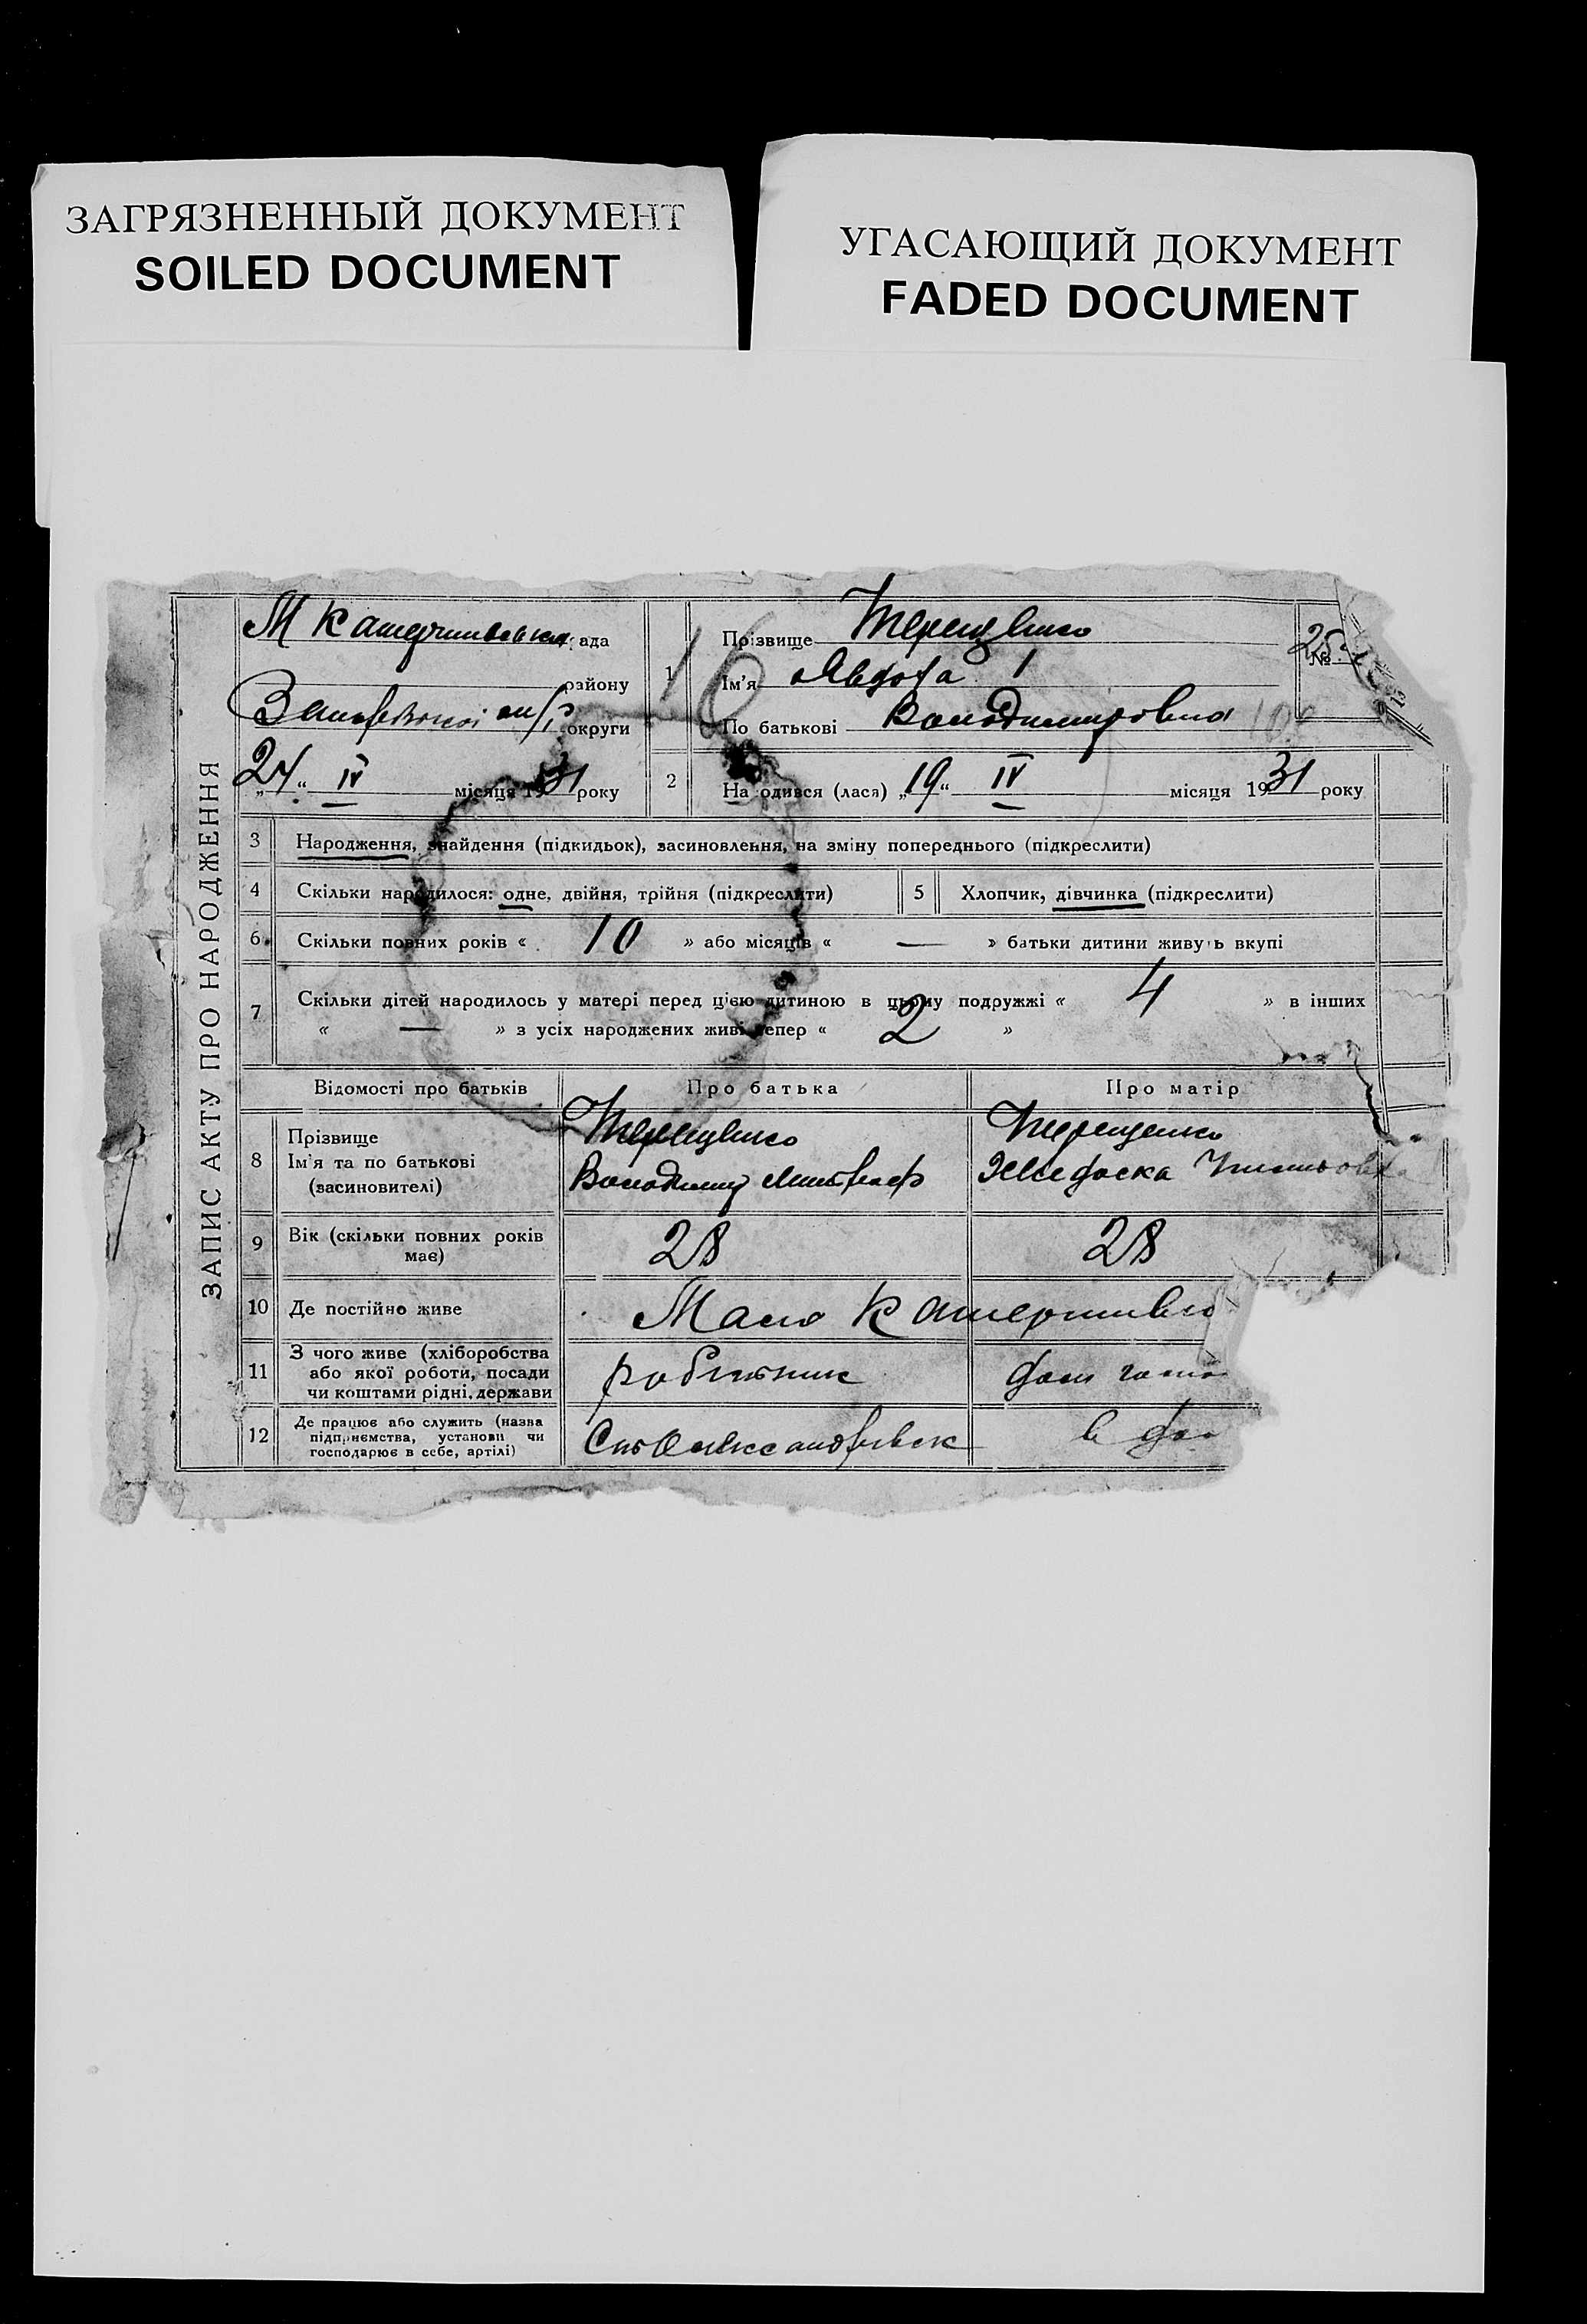 ЗАГРЯЗНЕННЫЙ ДОКУМЕНТ
SOILED DOCUMENT
УГАСАЮЩИЙ ДОКУМЕНТ
FADED DOCUMENT
ЗАПИС АКТУ ПРО НАРОДЖЕННЯ
М ада
району
округи
24 " IV місяця 1931 року
1
16
Прізвище Терещенко
Ім'я Явдоха
По батькові Володимировна
№ 25
2 На одився (лася) „19" IV місяця 1931 року
3 Народження, знайдення (підкидьок), засиновлення, на зміну попереднього (підкреслити)
4 Скільки народилося: одне, двійня, трійня (підкреслити) 5 Хлопчик, дівчинка (підкреслити)
6 Скільки повних років « 10 » або місяців « — » батьки дитини живуь вкупі
7 Скільки дітей народилось у матері перед цією дитиною в цьому подружжі « 4 » в інших
« — » з усіх народжених живі тепер « 2 »
Відомості про батьків Про батька Про матір
8 Прізвище
Ім'я та по батькові
(засиновителі)
Терещенко
Володимир
Терещенко
9 Вік (скільки повних років
має)
28 28
10 Де постійно живе Мало
11 З чого живе (хліборобства
або якої роботи, посади
чи коштами рідні, держави
робітник дом
12 Де працює або служить (назва
підприємства, установи чи
господарює в себе, артілі)
в